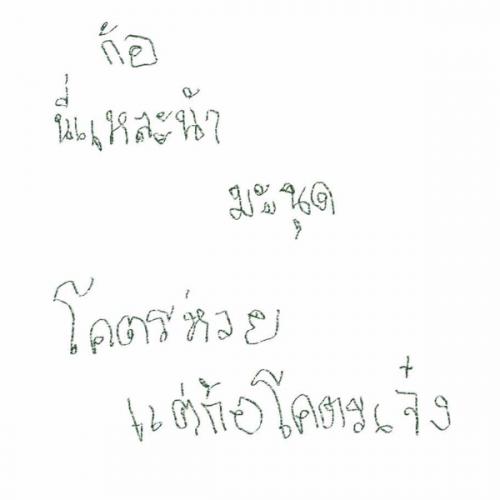 ก้อ
นี่แหละน้า
มะนุด
โคตรห่วย
แต่ก้อโคตรเจ๋ง